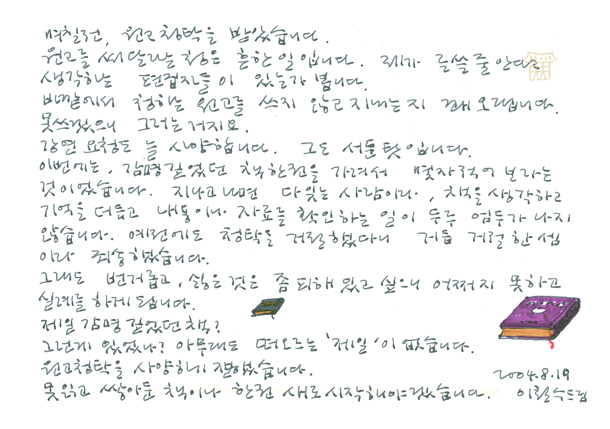 며칠전, 원고청탁을 받았습니다.
원고를 써달라는 청은 흔한 일입니다. 제가 글 쓸 줄 안다고
생각하는 편집자들이 있는가 봅니다.
바깥에서 청하는 원고를 쓰지 않고 지내는지 꽤 오래됩니다.
못쓰겠으니 그러는거지요.
강연 요청도 늘 사양합니다. 그도 서툰 탓입니다.
이번에는, 감명깊었던 책 한권을 가려서 몇자 적어 보라는
것이었습니다. 지나고나면 다 잊는 사람이라, 책을 생각하고
기억을 더듬고 내용이나 자료를 확인하는 일이 두루 엄두가 나지
않습니다. 예전에도 청탁을 거절했다니 거듭 거절한 셈
이라 죄송했습니다.
그래도 번거롭고, 싫은 것은 좀 피해 있고 싶으니 어쩌지 못하고
실례를 하게 됩니다.
제일 감명 깊었던 책?
그런게 있었나? 아무래도 떠오르는 '제일'이 없습니다.
원고청탁을 사양하기 잘했습니다.
못읽고 쌓아둔 책이나 한권 새로 시작해야겠습니다.
2004.8.19
이철수드림